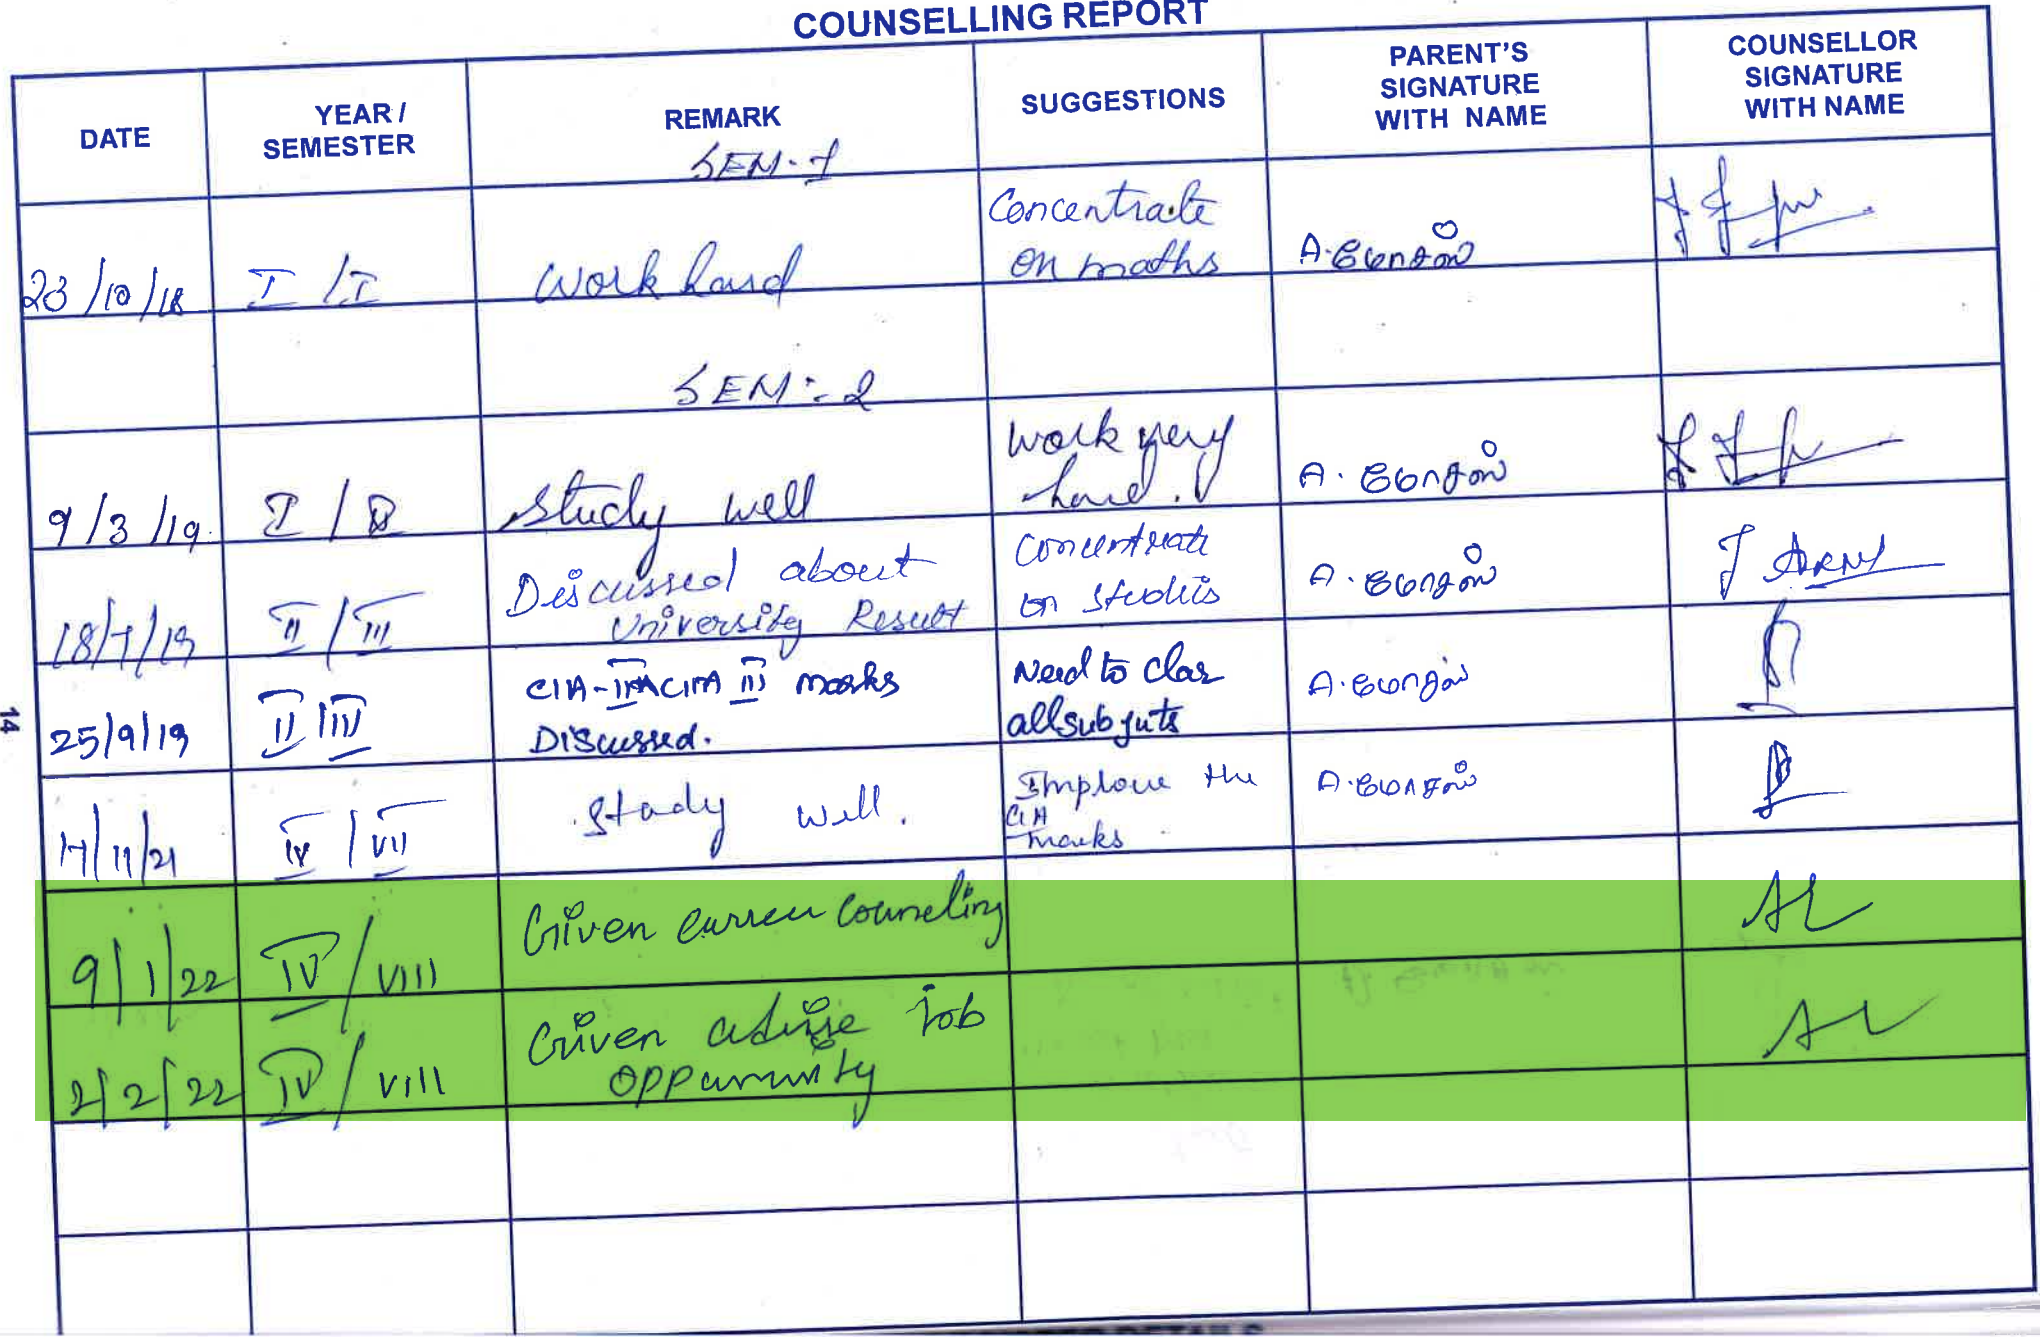 COUNSELLING REPORT
DATE
YEAR /
SEMESTER
REMARK
SUGGESTIONS
PARENT'S
SIGNATURE
WITH NAME
COUNSELLOR
SIGNATURE
WITH NAME
SEM-1
23/10/18
I / I
Work hard
Concentrate
on maths
SEM:-2
9/3/19
I / II
Study well
work very
hard.
18/7/19
II / III
Discussed about
University Result
Concentrate
on studies
J
25/9/19
II / III
CIA-II CIA III marks
Discussed.
Need to clar
all subjuts
17/11/21
IV / VII
Study well.
Improve the
CIA
marks
9/1/22
IV / VIII
Given counseling
2/2/22
IV / VIII
Given advise Job
oppurunity
14